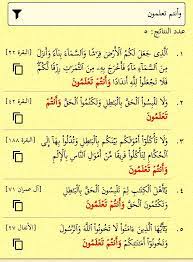 وأنتم تعلمون
عدد النتائج: ٥
١. الَّذِي جَعَلَ لَكُمُ الْأَرْضَ فِرَاشًا وَالسَّمَاءَ بِنَاءً وَأَنْزَلَ [البقرة ٢٢]
مِنَ السَّمَاءِ مَاءً فَأَخْرَجَ بِهِ مِنَ الثَّمَرَاتِ رِزْقًا لَكُمْ
فَلَا تَجْعَلُوا لِلَّهِ أَنْدَادًا وَأَنْتُمْ تَعْلَمُونَ
٢. وَلَا تَلْبِسُوا الْحَقَّ بِالْبَاطِلِ وَتَكْتُمُوا الْحَقَّ وَأَنْتُمْ [البقرة ٤٢]
تَعْلَمُونَ
٣. وَلَا تَأْكُلُوا أَمْوَالَكُمْ بَيْنَكُمْ بِالْبَاطِلِ وَتُدْلُوا بِهَا إِلَى [البقرة ١٨٨]
الْحُكَّامِ لِتَأْكُلُوا فَرِيقًا مِنْ أَمْوَالِ النَّاسِ بِالْإِثْمِ
وَأَنْتُمْ تَعْلَمُونَ
٤. يَا أَهْلَ الْكِتَابِ لِمَ تَلْبِسُونَ الْحَقَّ بِالْبَاطِلِ [آل عمران ٧١]
وَتَكْتُمُونَ الْحَقَّ وَأَنْتُمْ تَعْلَمُونَ
٥. يَا أَيُّهَا الَّذِينَ آمَنُوا لَا تَخُونُوا اللَّهَ وَالرَّسُولَ [الأنفال ٢٧]
وَتَخُونُوا أَمَانَاتِكُمْ وَأَنْتُمْ تَعْلَمُونَ